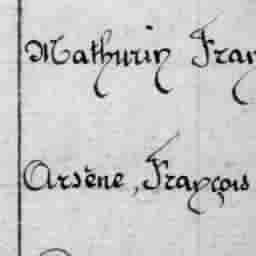 Mathurin Fran
Arsène, François